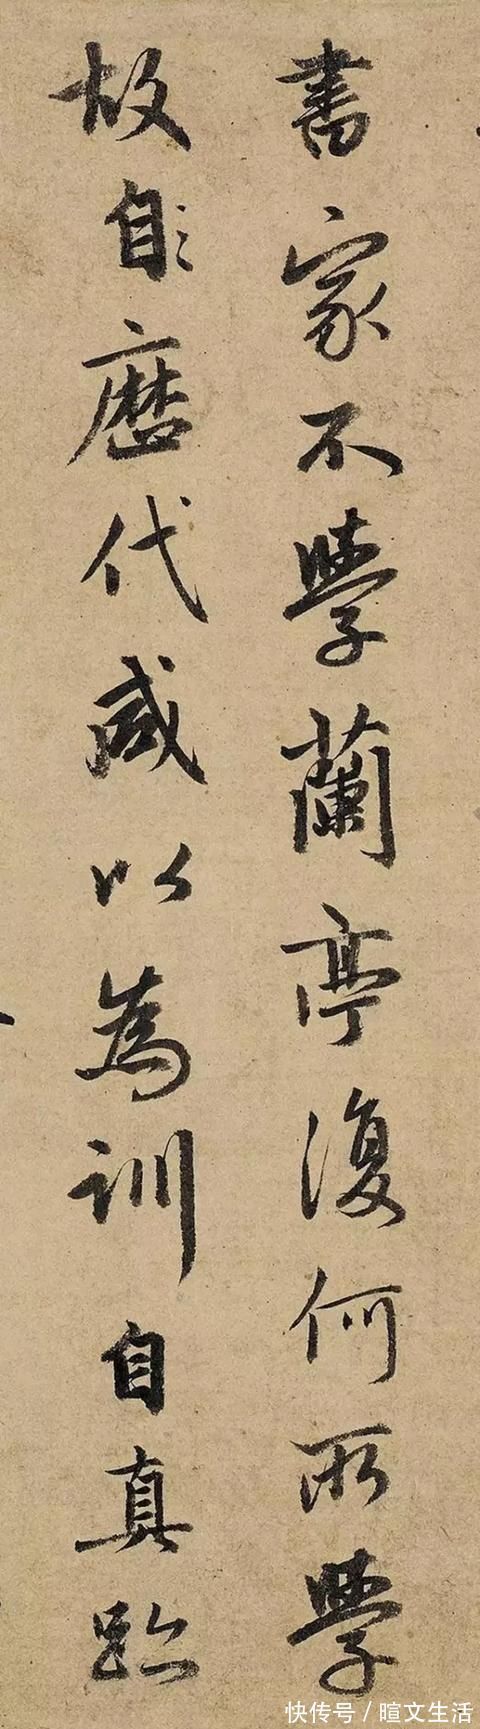 書家不學蘭亭復何所學
故自歷代咸以為訓自真跡
快传号/暄文生活